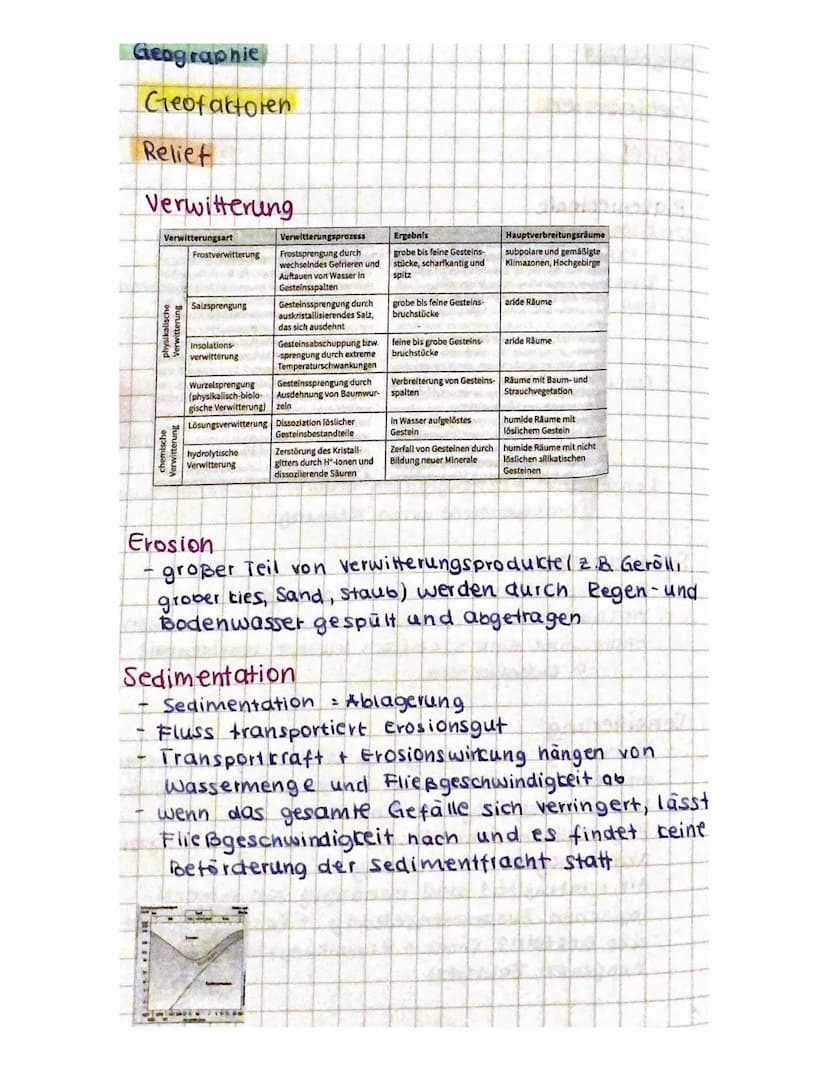 Geographie
Geofaktoren
Relief
Verwitterung
Verwitterungsart Verwitterungsprozess Ergebnis Hauptverbreitungsräume
physikalische Verwitterung
Frostverwitterung Frostsprengung durch wechselndes Gefrieren und Auftauen von Wasser in Gesteinsspalten grobe bis feine Gesteins-stücke, scharfkantig und spitz subpolare und gemäßigte Klimazonen, Hochgebirge
Salzsprengung Gesteinssprengung durch auskristallisierendes Salz, das sich ausdehnt grobe bis feine Gesteins-bruchstücke aride Räume
Insolations-verwitterung Gesteinsabschuppung bzw. -sprengung durch extreme Temperaturschwankungen feine bis grobe Gesteins-bruchstücke aride Räume
Wurzelsprengung (physikalisch-biolo-gische Verwitterung) Gesteinssprengung durch Ausdehnung von Baumwur-zeln Verbreiterung von Gesteins-spalten Räume mit Baum- und Strauchvegetation
chemische Verwitterung
Lösungsverwitterung Dissoziation löslicher Gesteinsbestandteile in Wasser aufgelöstes Gestein humide Räume mit löslichem Gestein
hydrolytische Verwitterung Zerstörung des Kristall-gitters durch H⁺-Ionen und dissoziierende Säuren Zerfall von Gesteinen durch Bildung neuer Minerale humide Räume mit nicht löslichen silikatischen Gesteinen
Erosion
- großer Teil von Verwitterungsprodukte (z.B. Geröll,
grober Kies, Sand, Staub) werden durch Regen- und
Bodenwasser gespült und abgetragen
Sedimentation
- Sedimentation = Ablagerung
- Fluss transportiert Erosionsgut
- Transportkraft + Erosionswirkung hängen von
Wassermenge und Fließgeschwindigkeit ab
- wenn das gesamte Gefälle sich verringert, lässt
Fließgeschwindigkeit nach und es findet keine
Beförderung der Sedimentfracht statt